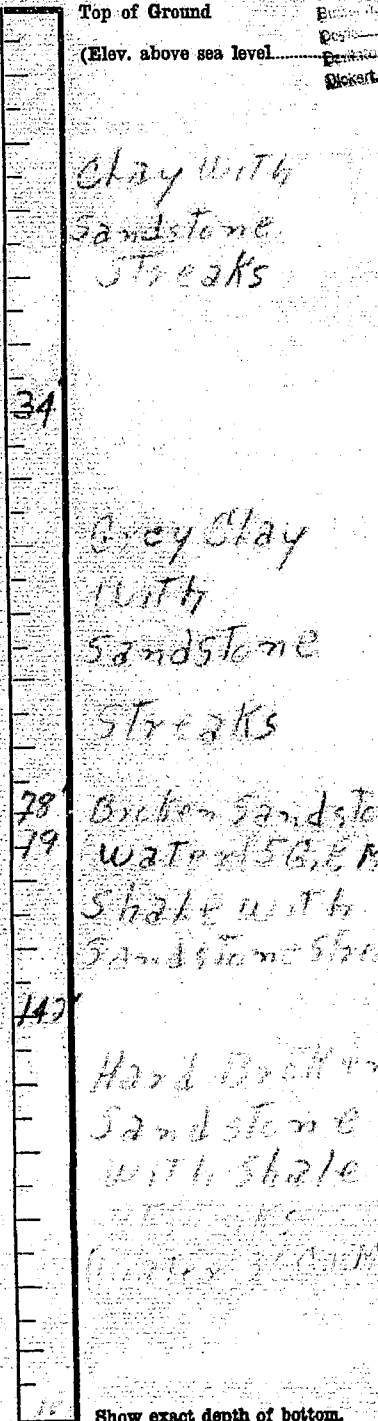 Top of Ground
(Elev. above sea level
Clay With
Sandstone
Streaks
34'
Grey Clay
With
Sandstone
Streaks
78' Broken Sandsto
79 Water
Shale with
Sandstone Stre
Hard Broken
Sandstone
with Shale
Show exact depth of bottom.